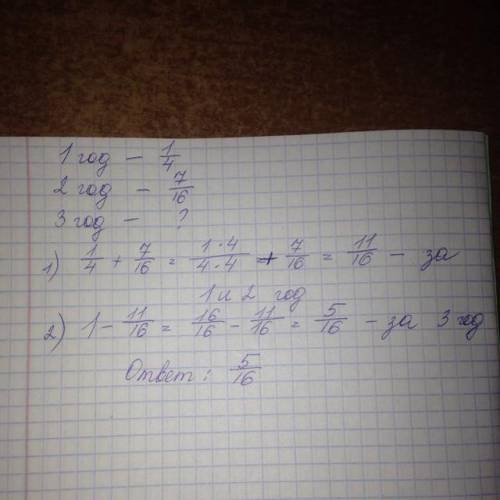 1 год – 1/4
2 год – 7/16
3 год – ?
1) 1/4 + 7/16 = 1·4/4·4 + 7/16 = 11/16 – за
1 и 2 год
2) 1 – 11/16 = 16/16 – 11/16 = 5/16 – за 3 год
Ответ: 5/16